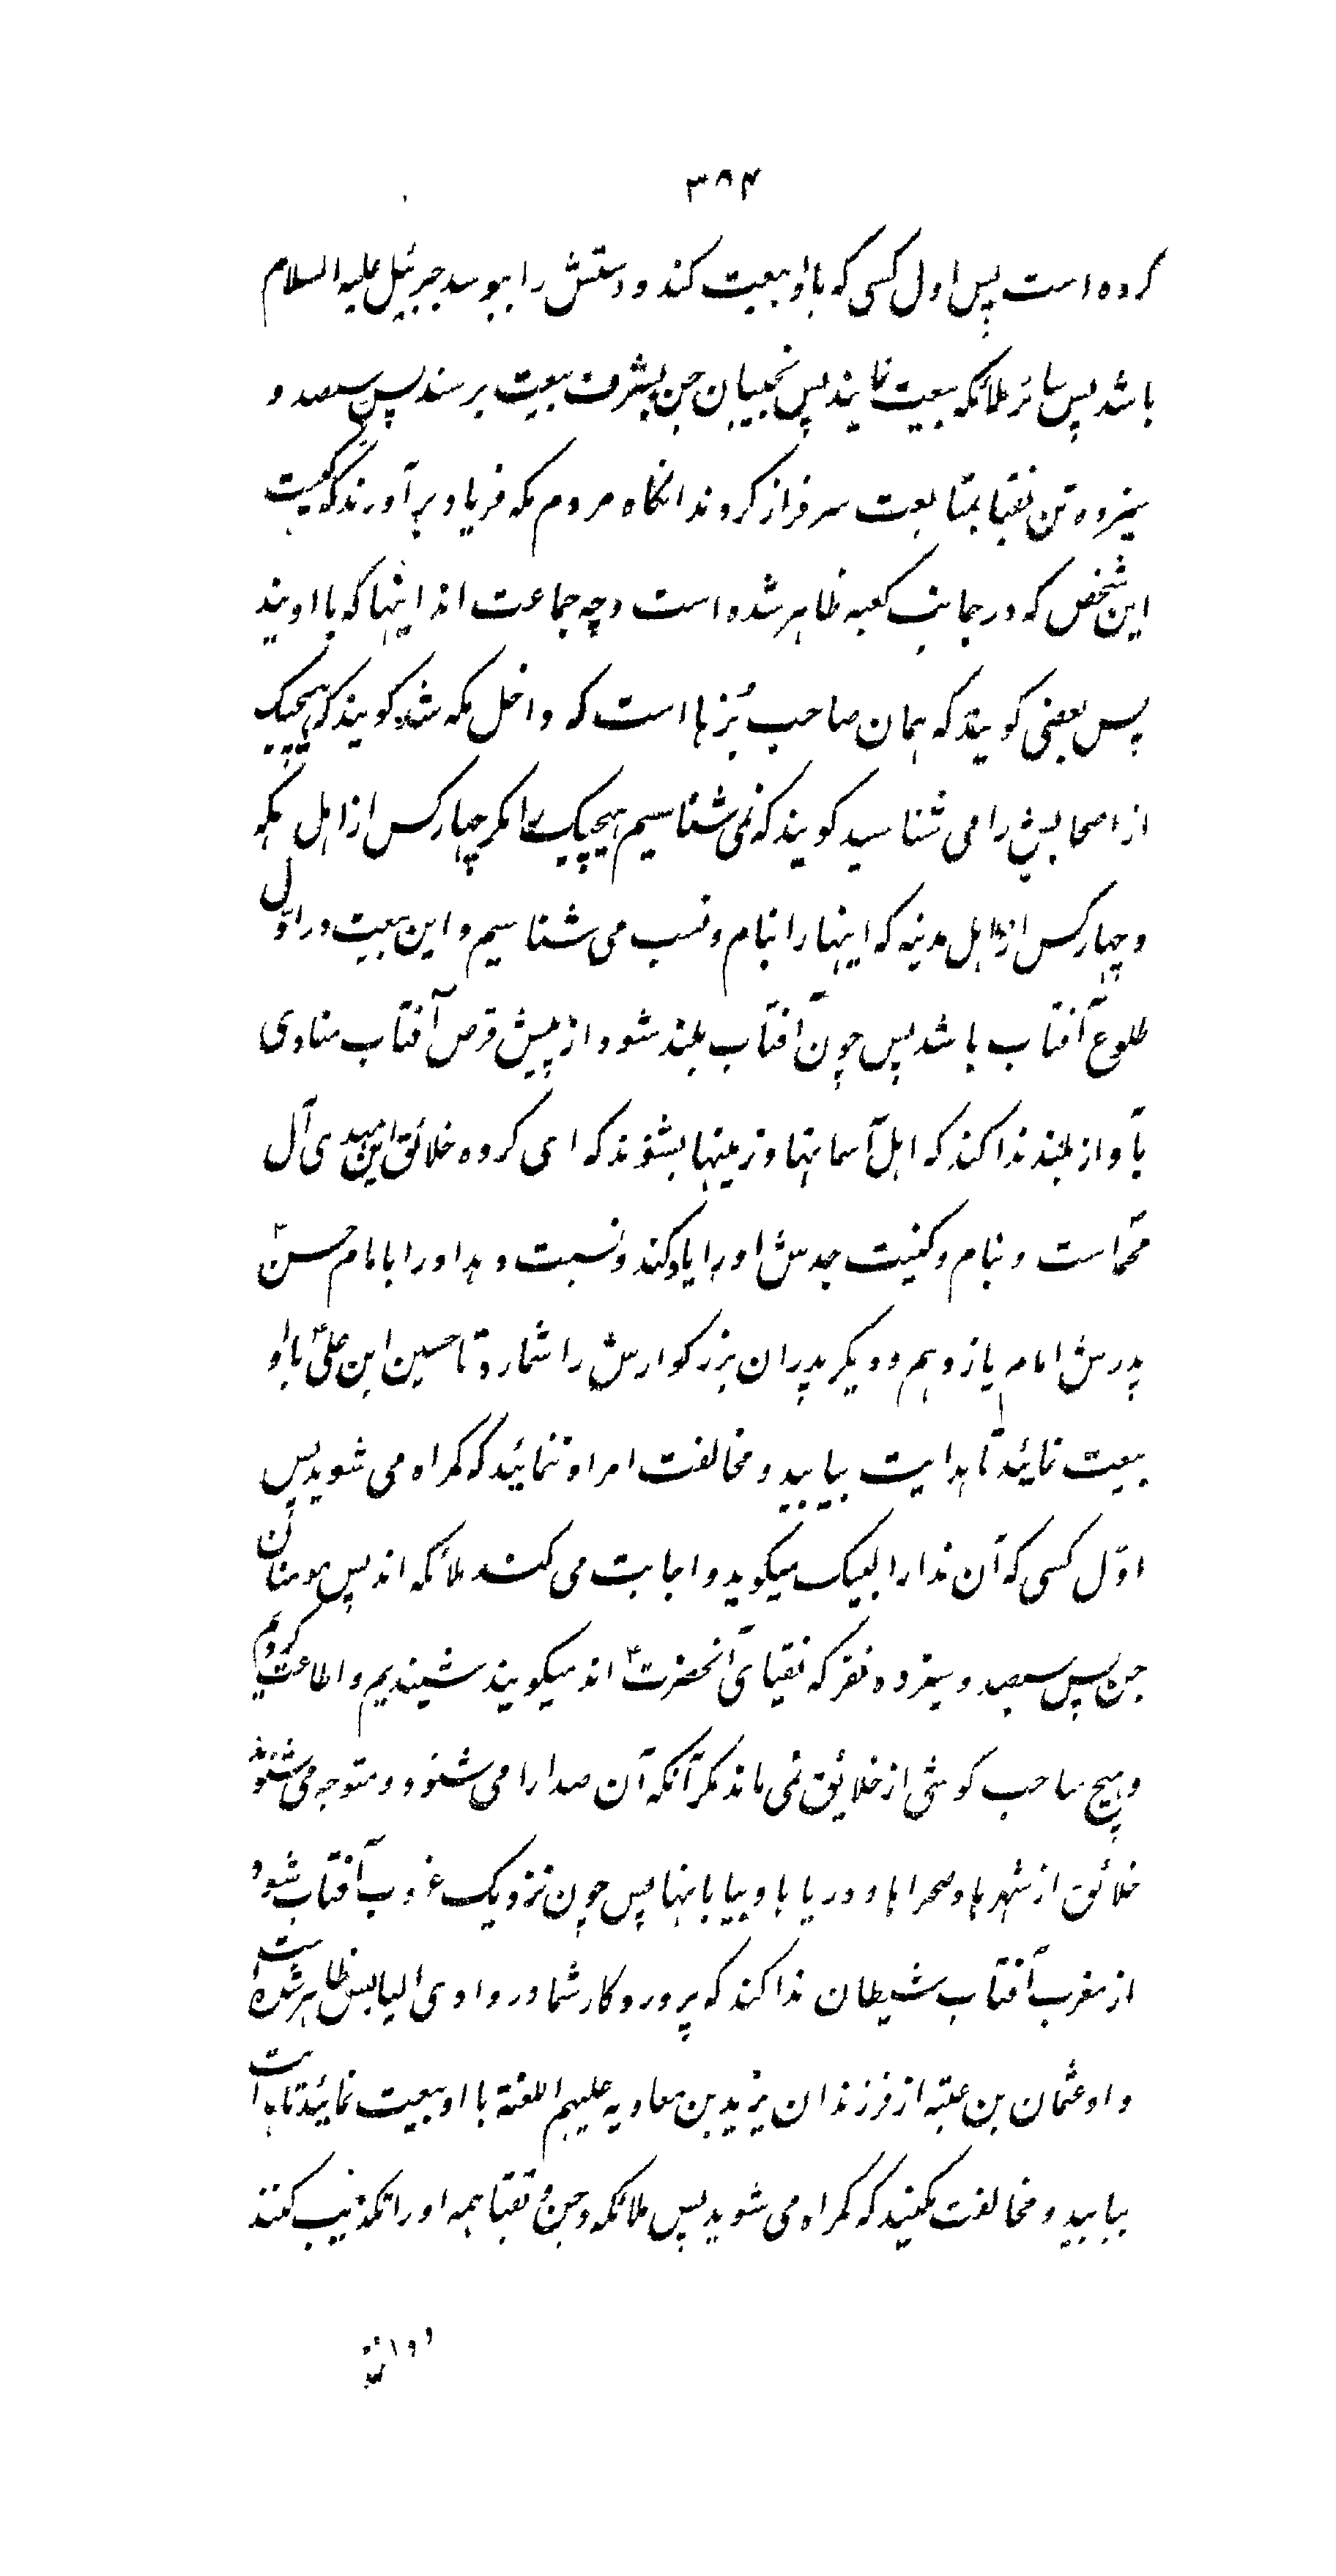 ۳۸۴
کرده است پس اول کسی که باو بیعت کند و دستش را ببوسد جبرئیل علیه السلام
باشد پس سائر ملائکه بیعت نمایند پس نجیبان جن بشرف بیعت برسند پس سیصد و
سیزده تن نقبا بمتابعت سرفراز کردند انگاه مردم مکه فریاد برآورند که کیست
این شخص که در جانب کعبه ظاهر شده است و چه جماعت اند اینها که با اویند
پس بعضی کویند که همان صاحب بُزها است که داخل مکه شد کویند که هیچیک
از اصحابش را می شناسید کویند که نمی شناسیم هیچیک را مکر چهار کس از اهل مکه
و چهار کس از اهل مدینه که اینها را بنام و نسب می شناسیم و این بیعت در اوّل
طلوع آفتاب باشد پس چون آفتاب بلند شود از پیش قرص آفتاب منادی
بآواز بلند ندا کند که اهل آسمانها و زمینها بشنوند که ای کروه خلائق این مهدی آل
محمّد است و بنام و کنیت جدش او را یاد کند و نسبت دهد او را بامام حسنؑ
پدرش امام یازدهم و دیکر پدران بزرکوارش را شمارد تا حسین ابن علیؑ باو
بیعت نمائید تا هدایت بیابید و مخالفت امر او ننمائید که کمراه می شوید پس
اوّل کسی که آن ندا را لبیک میکوید و اجابت می کند ملائکه اند پس مومنان
جن پس سیصد و سیزده نفر که نقبای آنحضرتؑ اند میکویند شنیدیم و اطاعت کردیم
و هیچ صاحب کوشی از خلایق نمی ماند مکر آنکه آن صدا را می شنود و متوجه می شوند
خلائق از شهرها و صحراها و دریاها و بیابانها پس چون نزدیک غروب آفتاب شود
از مغرب آفتاب شیطان ندا کند که پروردکار شما در وادی الیابس ظاهر شده است
و او عثمان بن عتبه از فرزندان یزید بن معاویه علیهم اللعنة با او بیعت نمائید تا هدایت
بیابید و مخالفت مکنید که کمراه می شوید پس ملائکه و جن و نقبا همه او را تکذیب کنند